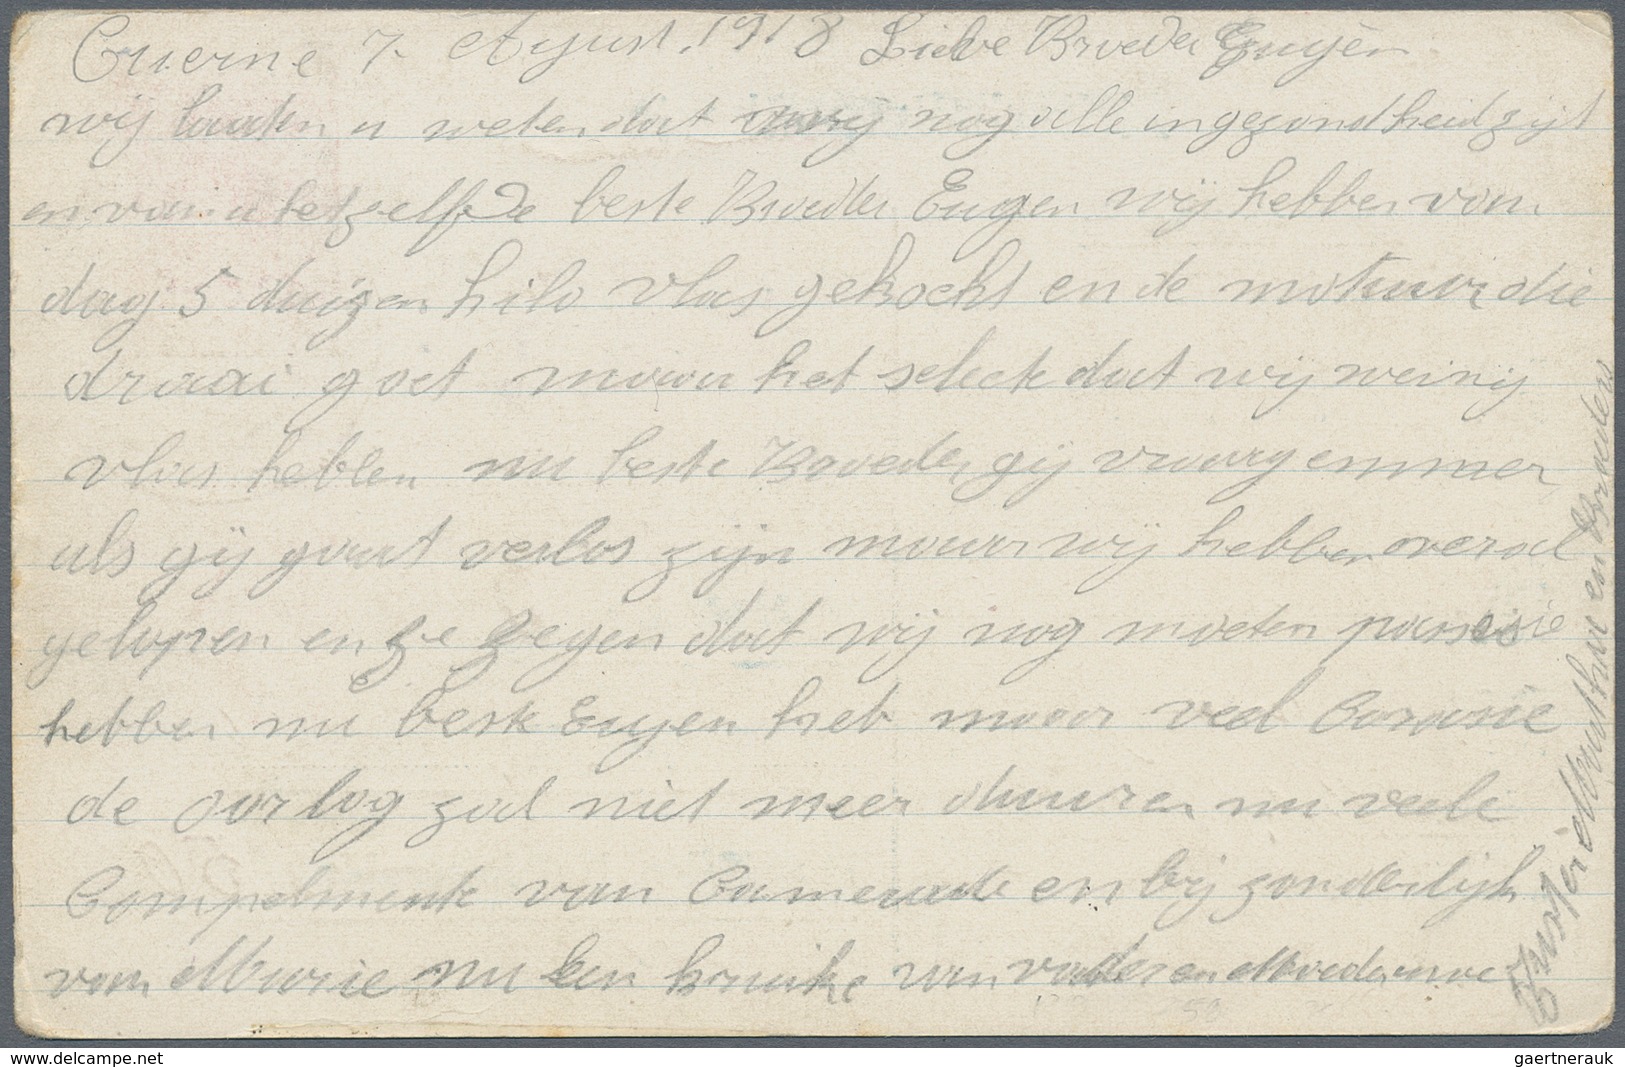 Cuerne 7 Agust. 1918 Lieve Broeder Eugèn
wij laaten u weten dat wij nog alle in gezondheid zijt
en van u het zelfde beste Broeder Eugen wij hebben van
dag 5 duizen kilo vlas gekocht en de motuur die
draai goet maar het sleck dat wij weinij
vlas hebben nu beste Broeder gij vraag emmer
als gij gaat verlos zijn maar wij hebben overal
gelopen en ze zegen dat wij nog moeten pansesie
hebben nu beste Eugen heb maar veel Corasie
de oorlog zal niet meer duuren nu veele
Compelmente van Camerade en bij zonderlijk
van Marie nu Een kruike van vader en Moeder uwe
Zuster Marthae en Broeders
59
www.delcampe.net
gaertnerauk